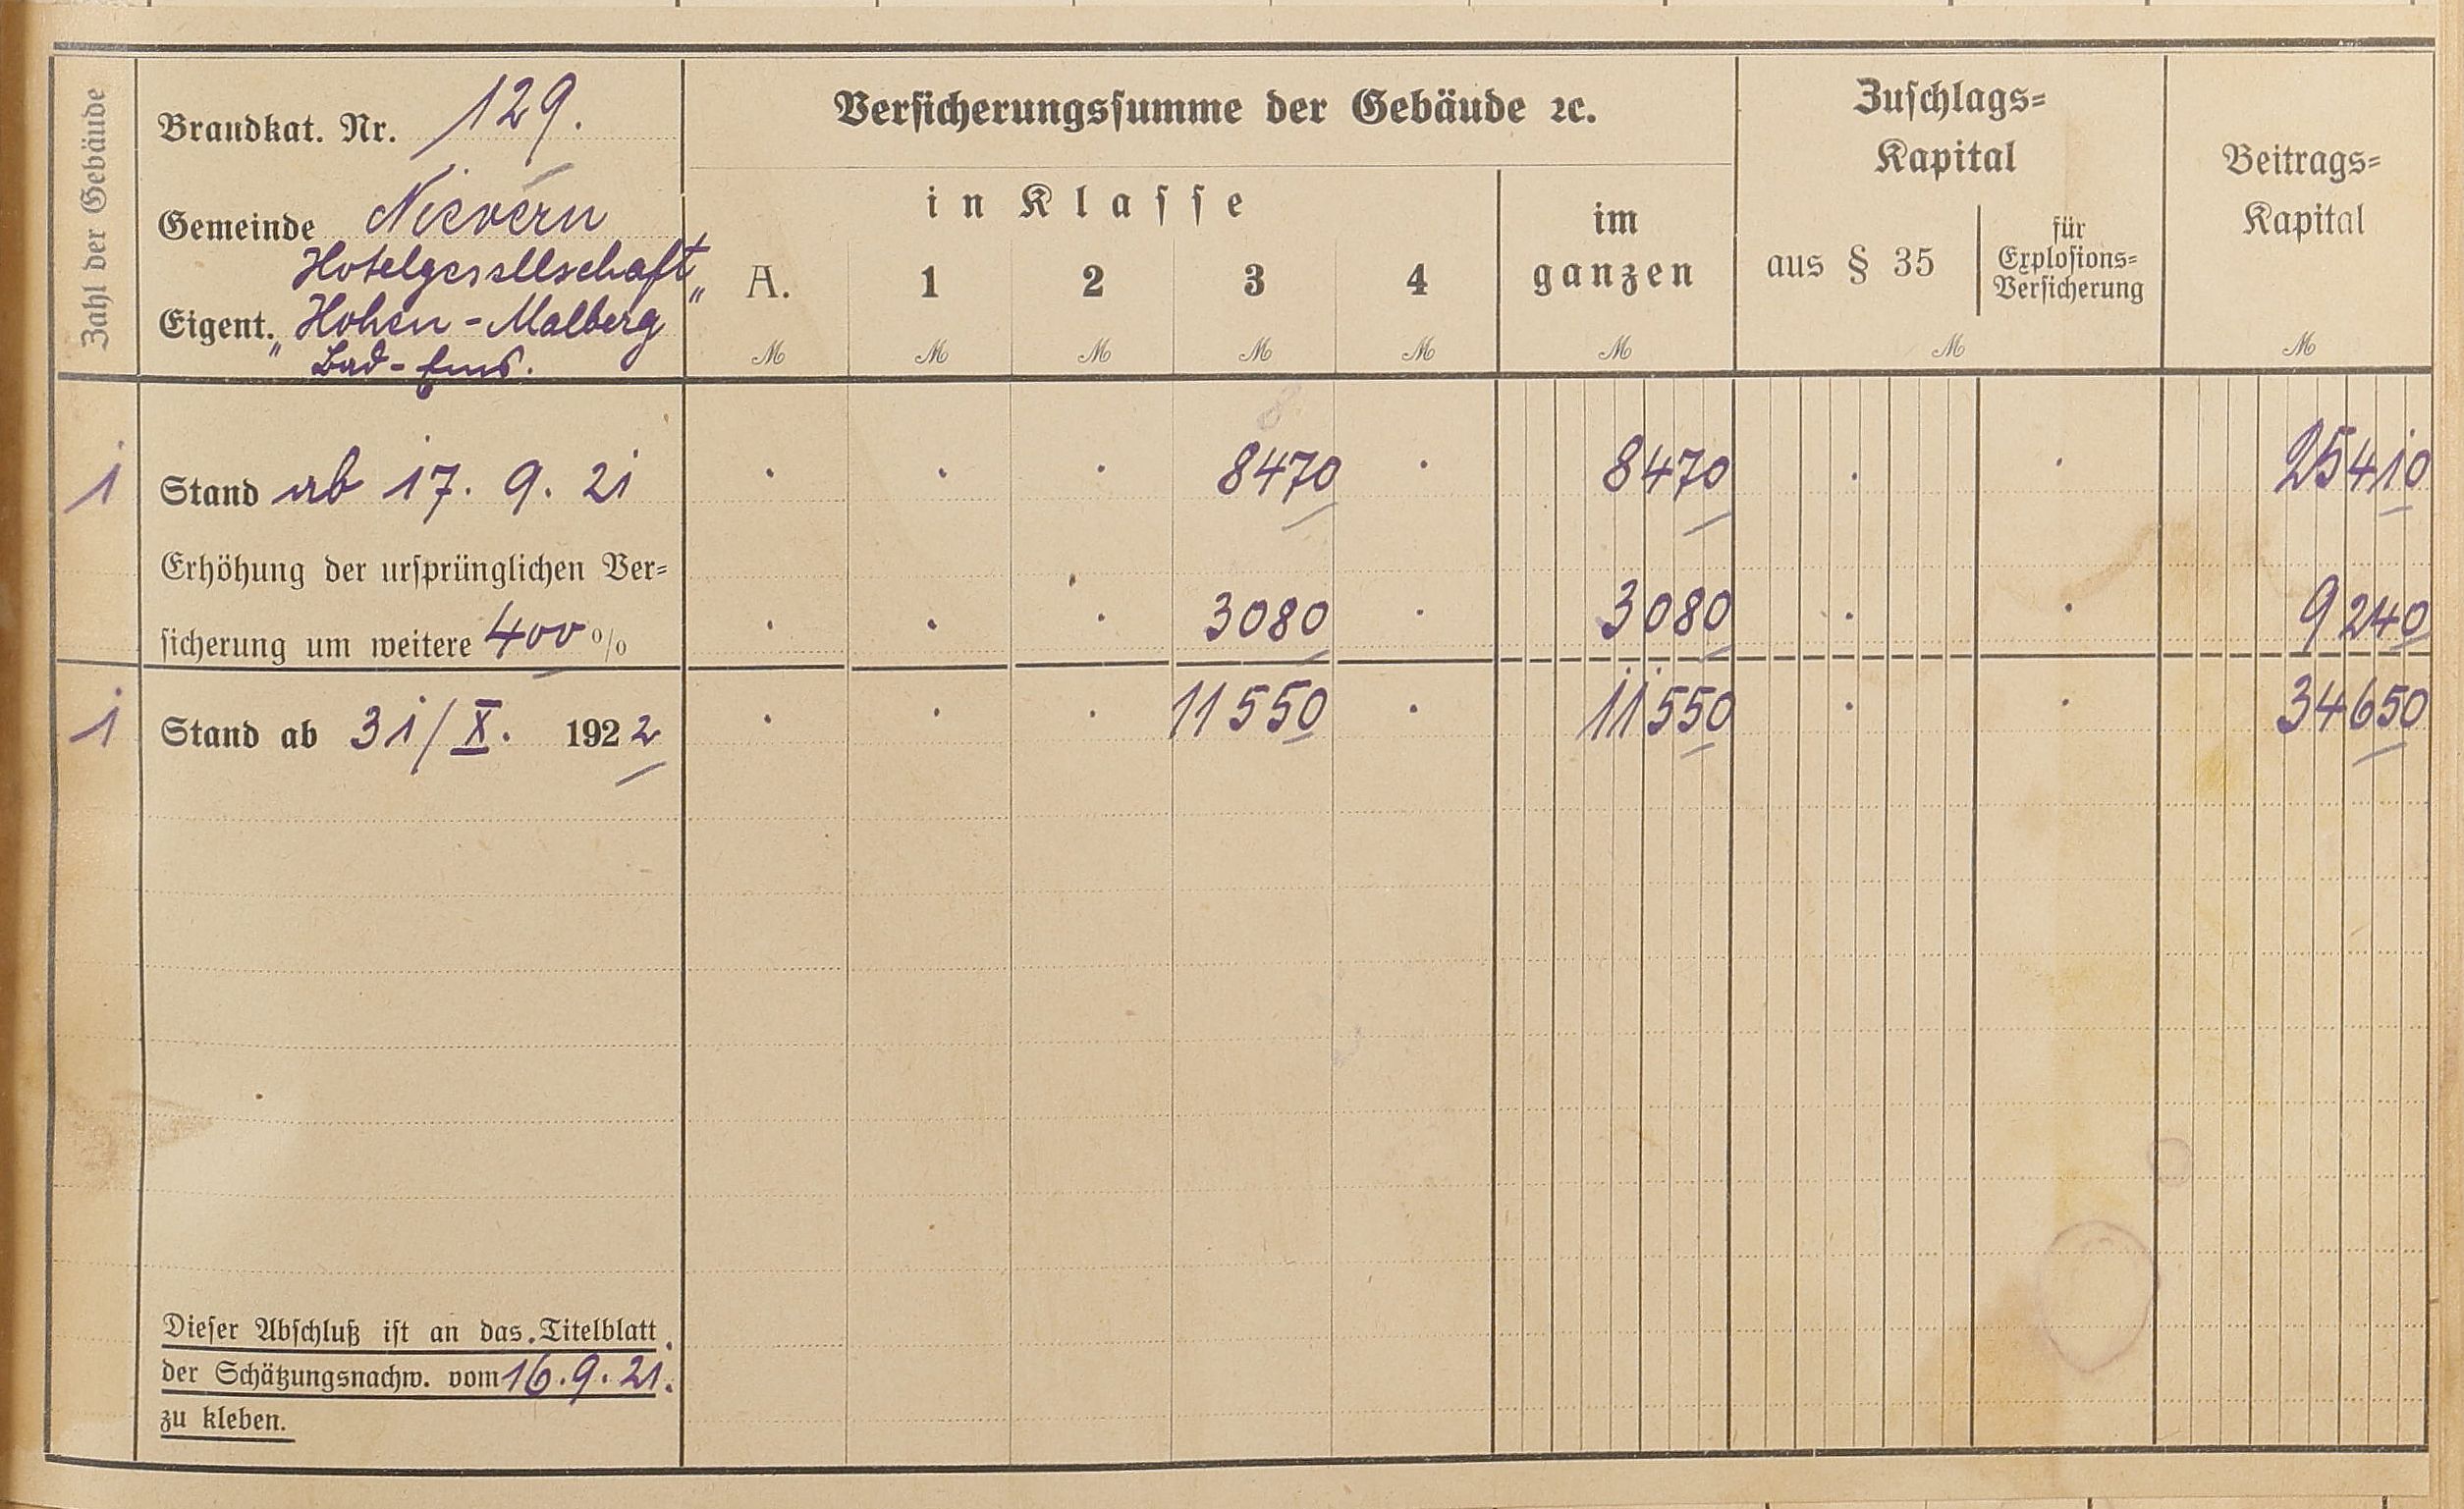 Zahl der Gebäude
Brandkat. Nr. 129.
Gemeinde Nievern
Hotelgesellschaft
Eigent. „Hohen-Malberg"
Bad-Ems.
Versicherungssumme der Gebäude ꝛc.
in Klasse
A. 1 2 3 4
im
ganzen
ℳ ℳ ℳ ℳ ℳ ℳ
Zuschlags-
Kapital
aus § 35
für
Explosions-
Versicherung
ℳ
Beitrags-
Kapital
ℳ
1 Stand ab 17. 9. 21 . . . 8470 . 8470 . . 25410
Erhöhung der ursprünglichen Ver-
sicherung um weitere 400 % . . . 3080 . 3080 . . 9240
1 Stand ab 31/X. 1922 . . . 11550 . 11550 . . 34650
Dieser Abschluß ist an das Titelblatt
der Schätzungsnachw. vom 16.9.21.
zu kleben.